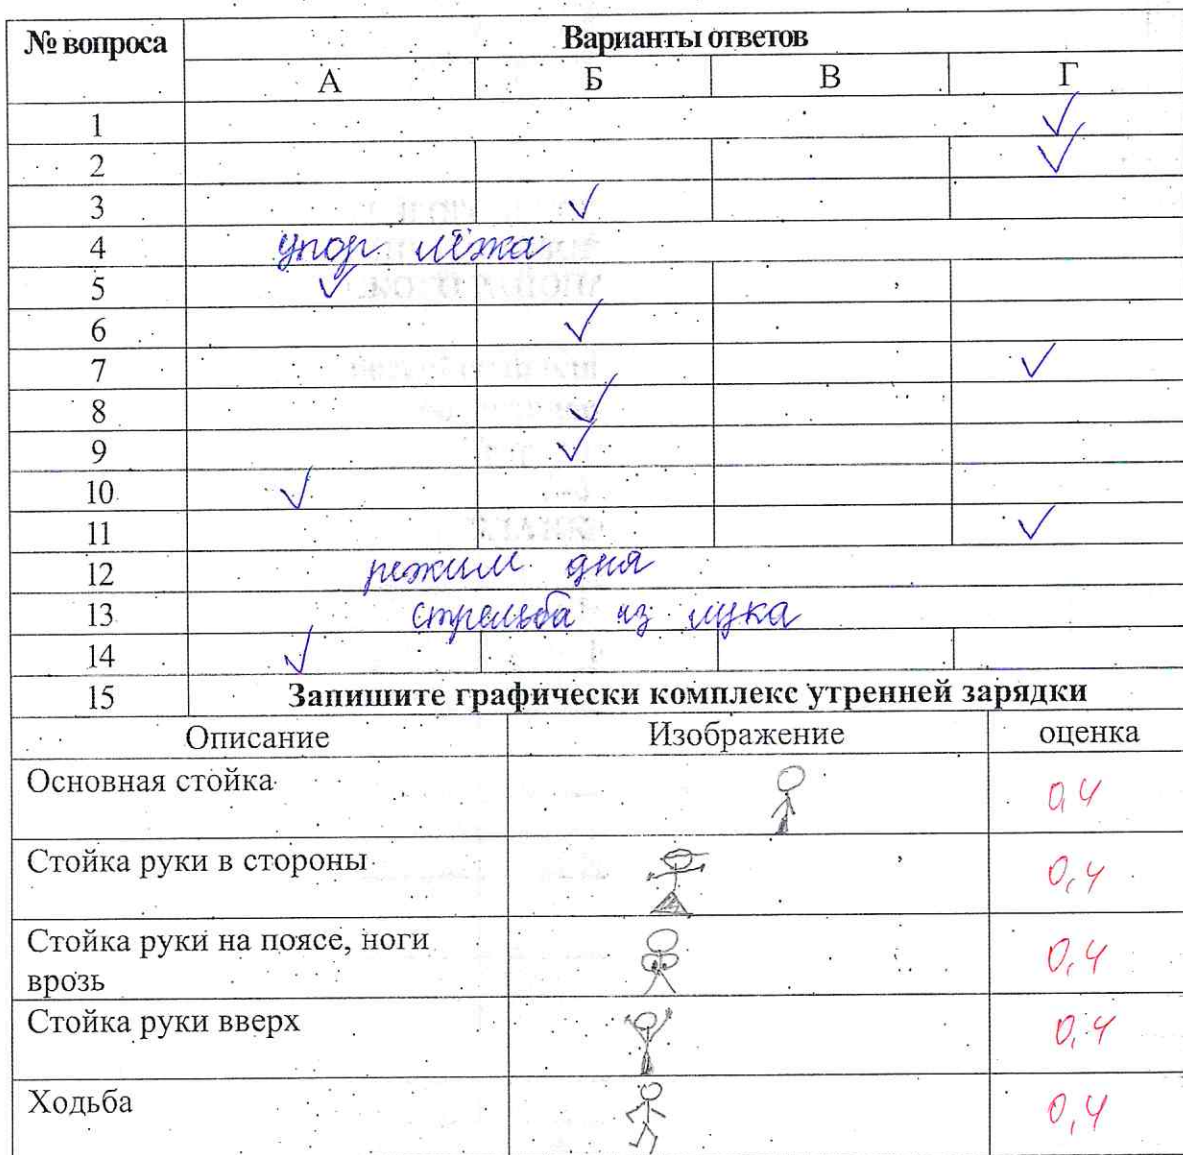 № вопроса Варианты ответов
А Б В Г
1 ✓
2 ✓
3 ✓
4 упор лёжа
5 ✓
6 ✓
7 ✓
8 ✓
9 ✓
10 ✓
11 ✓
12 режим дня
13 стрельба из лука
14 ✓
15 Запишите графически комплекс утренней зарядки
Описание Изображение оценка
Основная стойка 0,4
Стойка руки в стороны 0,4
Стойка руки на поясе, ноги 0,4
врозь
Стойка руки вверх 0,4
Ходьба 0,4